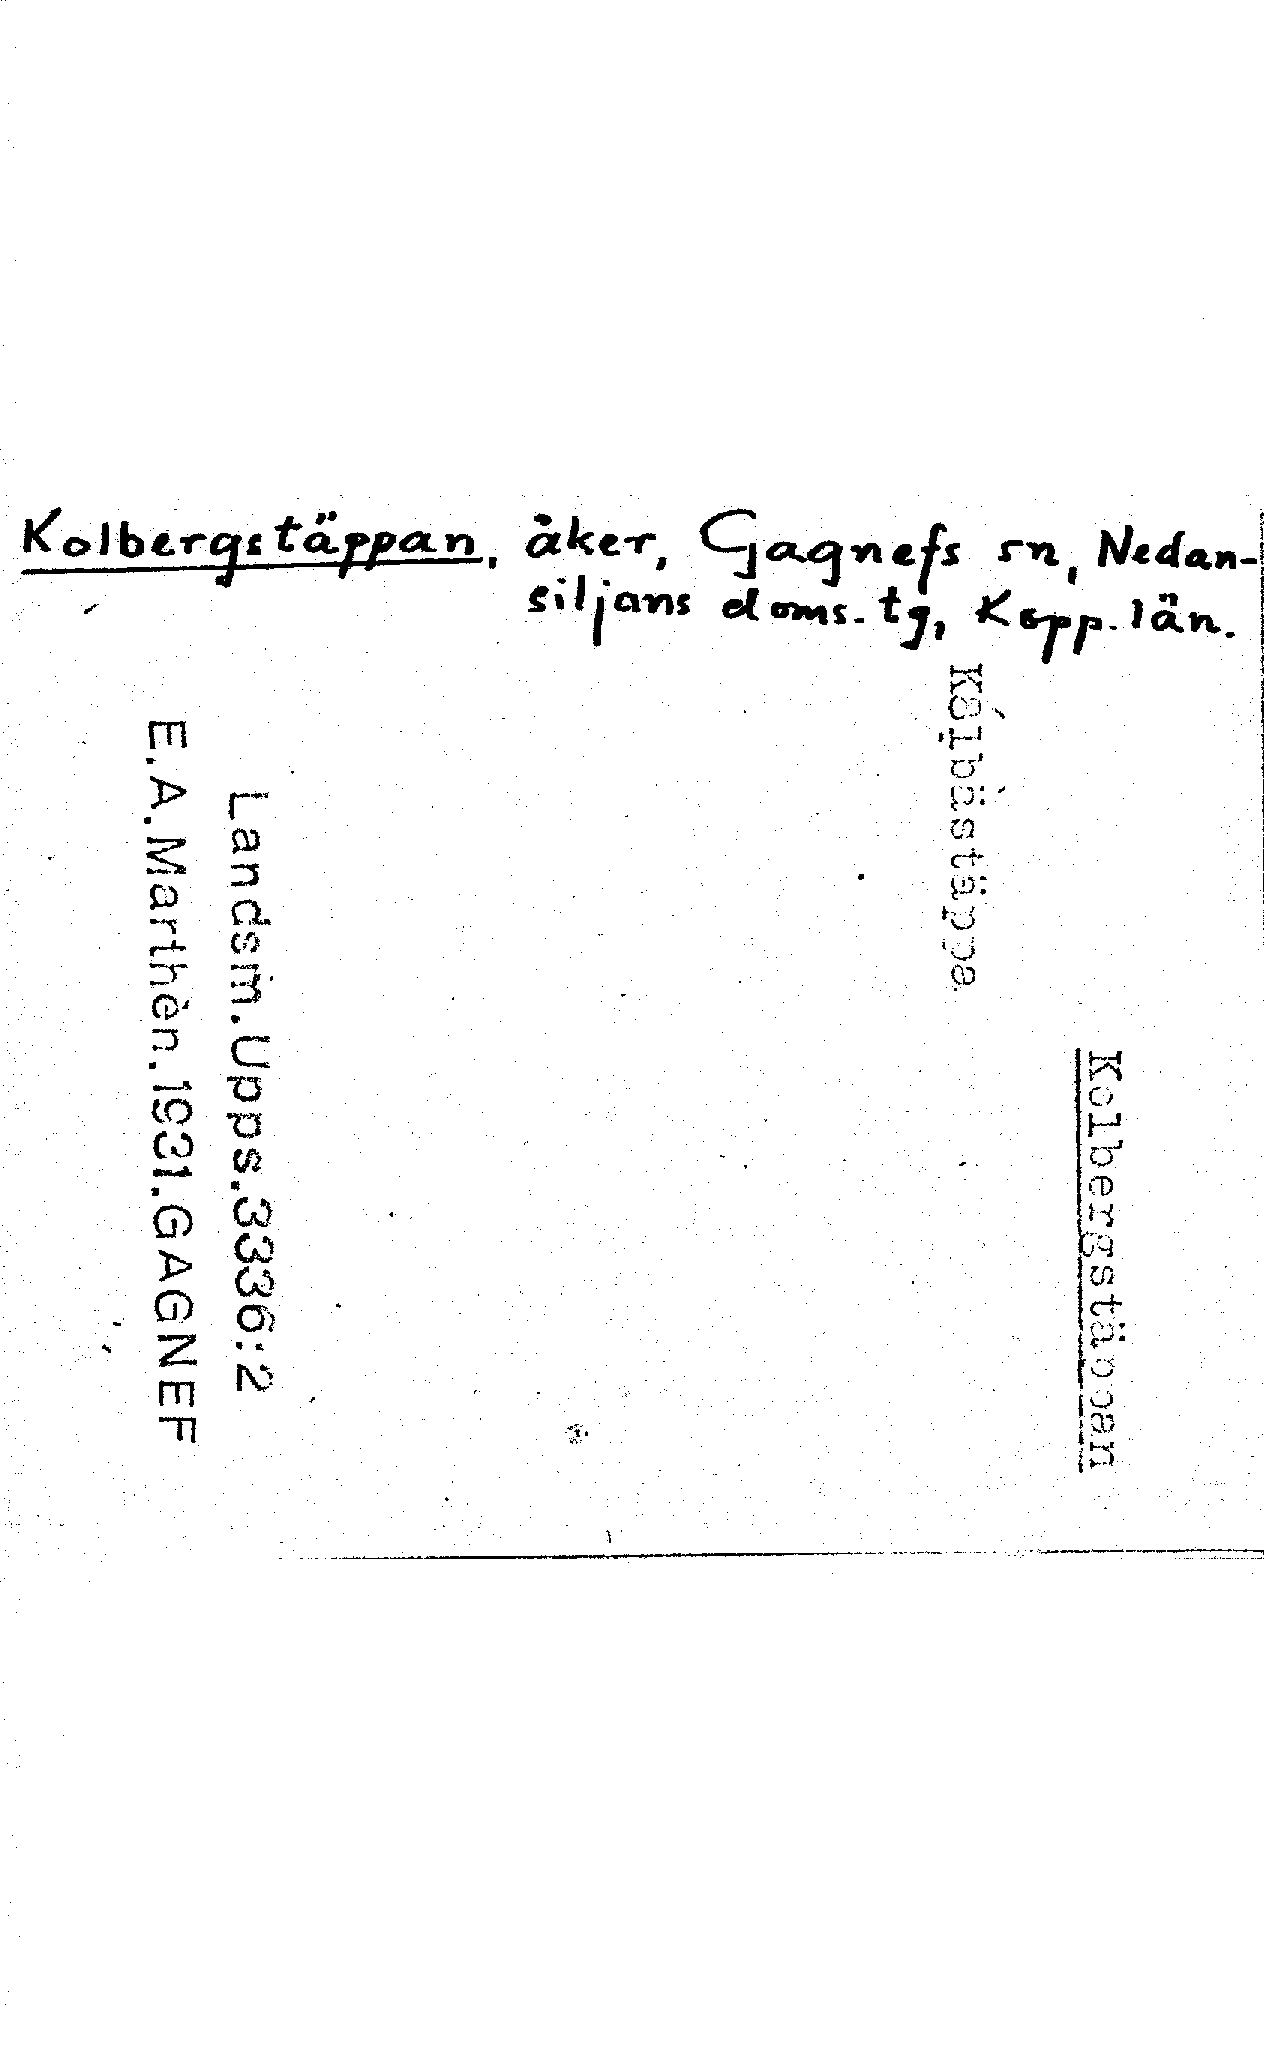 Kolbergstäppan, åker, Gagnefs sn, Nedan-
siljans doms. tg, Kopp. län.
Kolbergstäppan
Landsm. Upps. 3336:2
E.A. Marthèn. 1931. GAGNEF